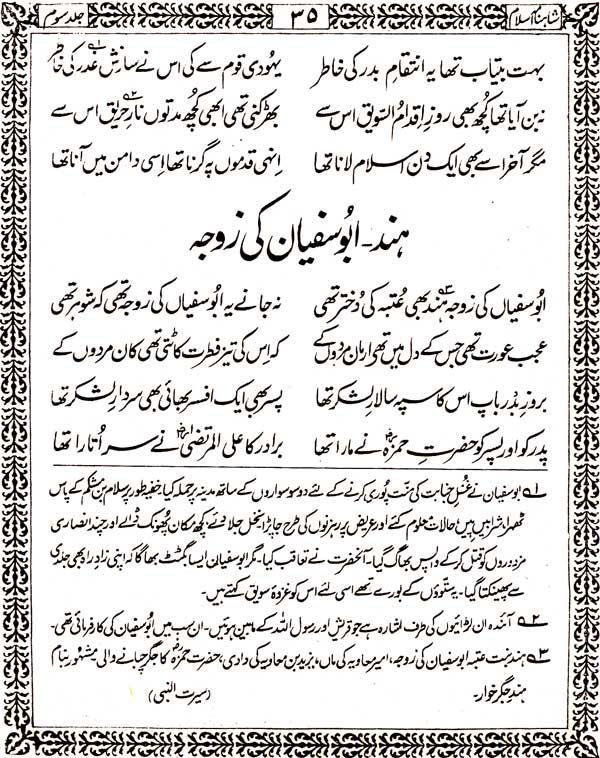 شاہنامۂ اسلام
۳۵
جلد سوم
بہت بیتاب تھا یہ انتقامِ بدر کی خاطر یہودی قوم سے کی اس نے سازش غدر کی خاطر
نہ بن آیا تھا کچھ بھی روزِ اِقدامُ السّویق اس سے بھڑکنی تھی ابھی کچھ مدتوں نارِ حریق اس سے
مگر آخر اسے بھی ایک دن اسلام لانا تھا اِنہی قدموں پہ گرنا تھا اِسی دامن میں آنا تھا
ہند - ابُو سفیان کی زوجہ
ابُو سفیاں کی زوجہ ہند بھی عُتبہ کی دُختر تھی نہ جانے یہ ابُو سفیاں کی زوجہ تھی کہ شوہر تھی
عجب عورت تھی جس کے دل میں تھی ارمان مردوں کے کہ اِس کی تیز فطرت کاٹتی تھی کان مردوں کے
بروزِ بدر باپ اس کا سپہ سالارِ لشکر تھا پسر بھی ایک افسر بھائی بھی سردارِ لشکر تھا
پدر کو اور پسر کو حضرتِ حمزہؓ نے مارا تھا برادر کا علی المرتضیٰؓ نے سر اُتارا تھا
۱ ابو سفیان نے غسلِ جنابت کی منّت پُوری کرنے کے لئے دو سو سواروں کے ساتھ مدینہ پر حملہ کیا۔ خفیہ طور پر سلام بن مشکم کے پاس
ٹھہرا شراب پی حالات معلوم کئے اور عریض پر رہزنوں کی طرح جا پڑا نخل جلائے، کچھ مکان پُھونک ڈالے اور چند انصاری
مزدوروں کو قتل کر کے واپس بھاگ گیا۔ آنحضرت نے تعاقب کیا۔ مگر ابو سفیان ایسا بگٹٹ بھاگا کہ اپنی زادِ راہ بھی جلدی
سے پھینکتا گیا۔ یہ ستوؤں کے بورے تھے اسی لئے اس کو غزوۂ سویق کہتے ہیں۔
۲ آئندہ ان لڑائیوں کی طرف اشارہ ہے جو قریش اور رسول اللہ کے مابین ہوئیں۔ ان سب میں ابُو سفیان کی کارفرمائی تھی۔
۳ ہند بنت عتبہ ابو سفیان کی زوجہ، امیر معاویہ کی ماں، یزید بن معاویہ کی دادی، حضرت حمزہؓ کا جگر چبانے والی مشہور بنام
ہندِ جگر خوار۔ (سیرت النبی)